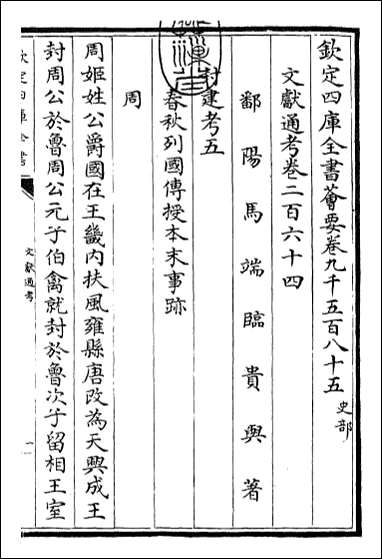 欽定四庫全書薈要卷九千五百八十五 史部
文獻通考卷二百六十四
鄱陽馬端臨貴與著
封建考五
春秋列國傳授本末事跡
周
周姬姓公爵國在王畿内扶風雍縣唐改為天興成王
封周公於魯周公元子伯禽就封於魯次子留相王室
欽定四庫全書
文獻通考
一